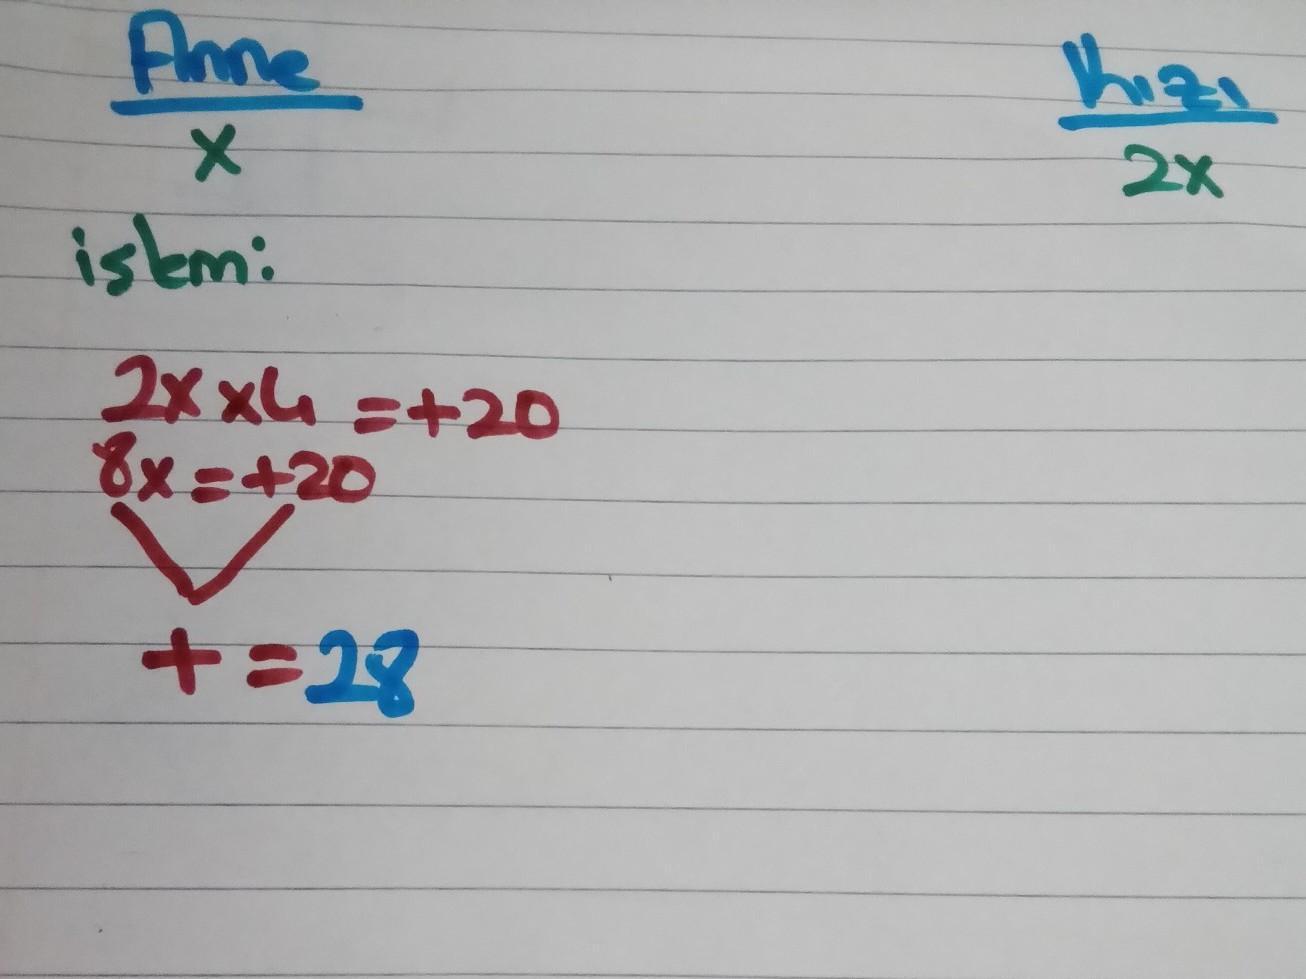 Anne Kızı
x 2x
işlem:
2x x4 =+20
8x=+20
+ = 28